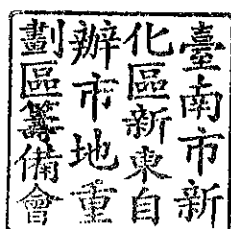 臺南市新
化區新東自
辦市地重
劃區籌備會